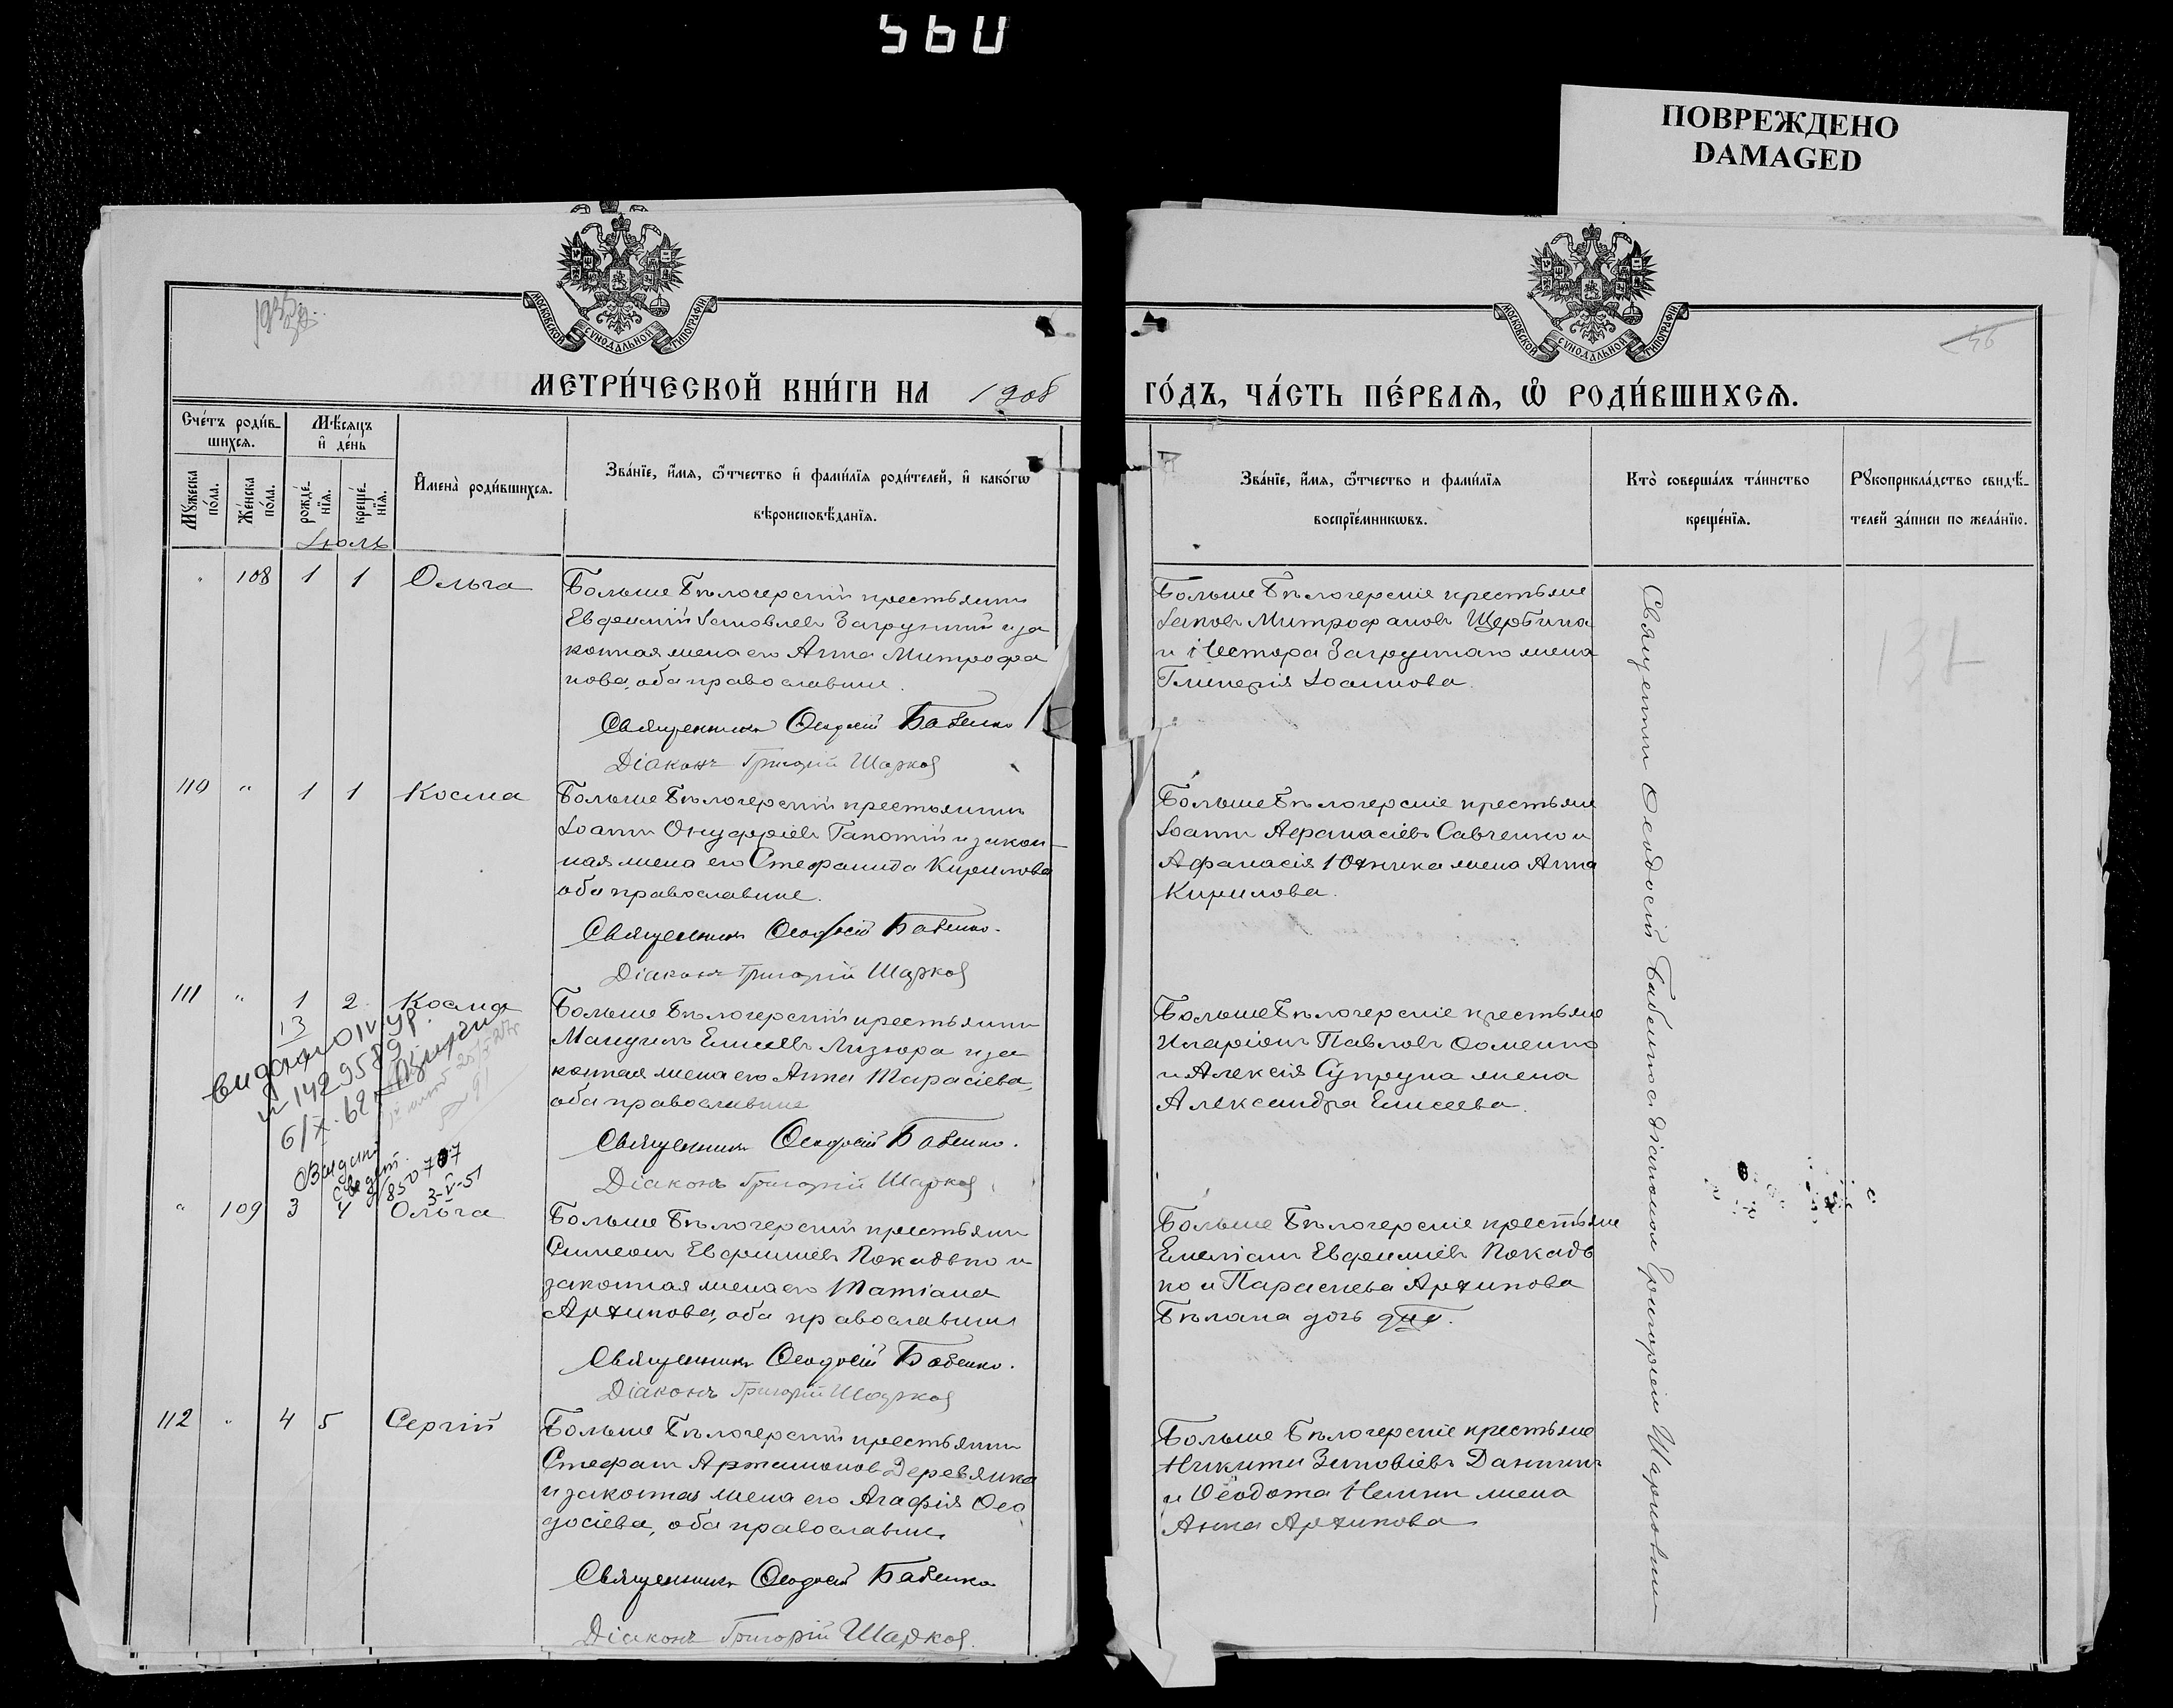 560
ПОВРЕЖДЕНО
DAMAGED
МОСКОВСКОЙ СѴНОДАЛЬНОЙ ТИПОГРАФІИ
МОСКОВСКОЙ СѴНОДАЛЬНОЙ ТИПОГРАФІИ
МЕТРИ́ЧЕСКОЙ КНИ́ГИ НА 1908
ГО́ДЪ, ЧА́СТЬ ПЕ́РВАѦ, Ѡ҆ РОДИ́ВШИХСѦ.
Сче́тъ роди́в-
шихсѧ.
Мѣ́сѧцъ
и҆ де́нь
Мꙋ́жеска
по́ла.
Же́нска
по́ла.
рожде-
нїѧ.
креще́-
нїѧ.
И҆мена̀ роди́вшихсѧ.
Зва́нїе, и҆́мѧ, ѻ҆́тчество и҆ фами́лїѧ роди́телей, и҆ како́гѡ
вѣроисповѣ́данїѧ.
Зва́нїе, и҆́мѧ, ѻ҆́тчество и фами́лїѧ
воспрїе́мникѡвъ.
Кто̀ соверша́лъ та́инство
креще́нїѧ.
Рꙋкоприкла́дство свидѣ́-
телей за́писи по жела́нїю.
Іюль
" 108 1 1 Ольга
Больше Бѣлозерскій крестьянинъ
Евфимій Іаковлевъ Загрунный и за
конная жена его Анна Митрофа
нова, оба православные.
Священникъ Ѳеодосій Бабенко
Діаконъ Григорій Шарков
Больше Бѣлозерскіе крестьяне
Іаковъ Митрофановъ Щербина
и Нестора Загруннаго жена
Гликерія Іоаннова.
137
110 " 1 1 Косма
Больше Бѣлозерскій крестьянинъ
Іоаннъ Онуфріевъ Гапотій и закон
ная жена его Стефанида Кирилова
оба православные.
Священникъ Ѳеодосій Бабенко.
Діаконъ Григорій Шарков
Больше Бѣлозерскіе крестьяне
Іоаннъ Афанасіевъ Савченко и
Афанасія Юхника жена Анна
Кирилова.
111 " 1 2 Косма
13
6/X-62
Больше Бѣлозерскій крестьянинъ
Мануилъ Елисеевъ Лизюра и за
конная жена его Анна Тарасіева,
оба православные
Священникъ Ѳеодосій Бабенко.
Діаконъ Григорій Шарков
Больше Бѣлозерскіе крестьяне
Иларіонъ Павловъ Ѳоменко
и Алексія Супруна жена
Александра Елисеева.
3-V-51
" 109 3 4 Ольга
Больше Бѣлозерскій крестьянинъ
Симеонъ Евфиміевъ Покадько и
законная жена его Татіана
Архипова, оба православные
Священникъ Ѳеодосій Бабенко.
Діаконъ Григорій Шарков
Больше Бѣлозерскіе крестьяне
Емеліанъ Евфиміевъ Покадь
ко и Параскева Архипова
Бѣлана дочь дѣв.
112 " 4 5 Сергій
Больше Бѣлозерскій крестьянинъ
Стефанъ Артамоновъ Деревянка
и законная жена его Агафія Ѳео
досіева, оба православные
Священникъ Ѳеодосій Бабенко
Діаконъ Григорій Шарков.
Больше Бѣлозерскіе крестьяне
Никита Зиновіевъ
и Ѳеодота жена
Анна Архипова
Священникъ Ѳеодосій Бабенко съ діакономъ Григоріемъ Шарковымъ